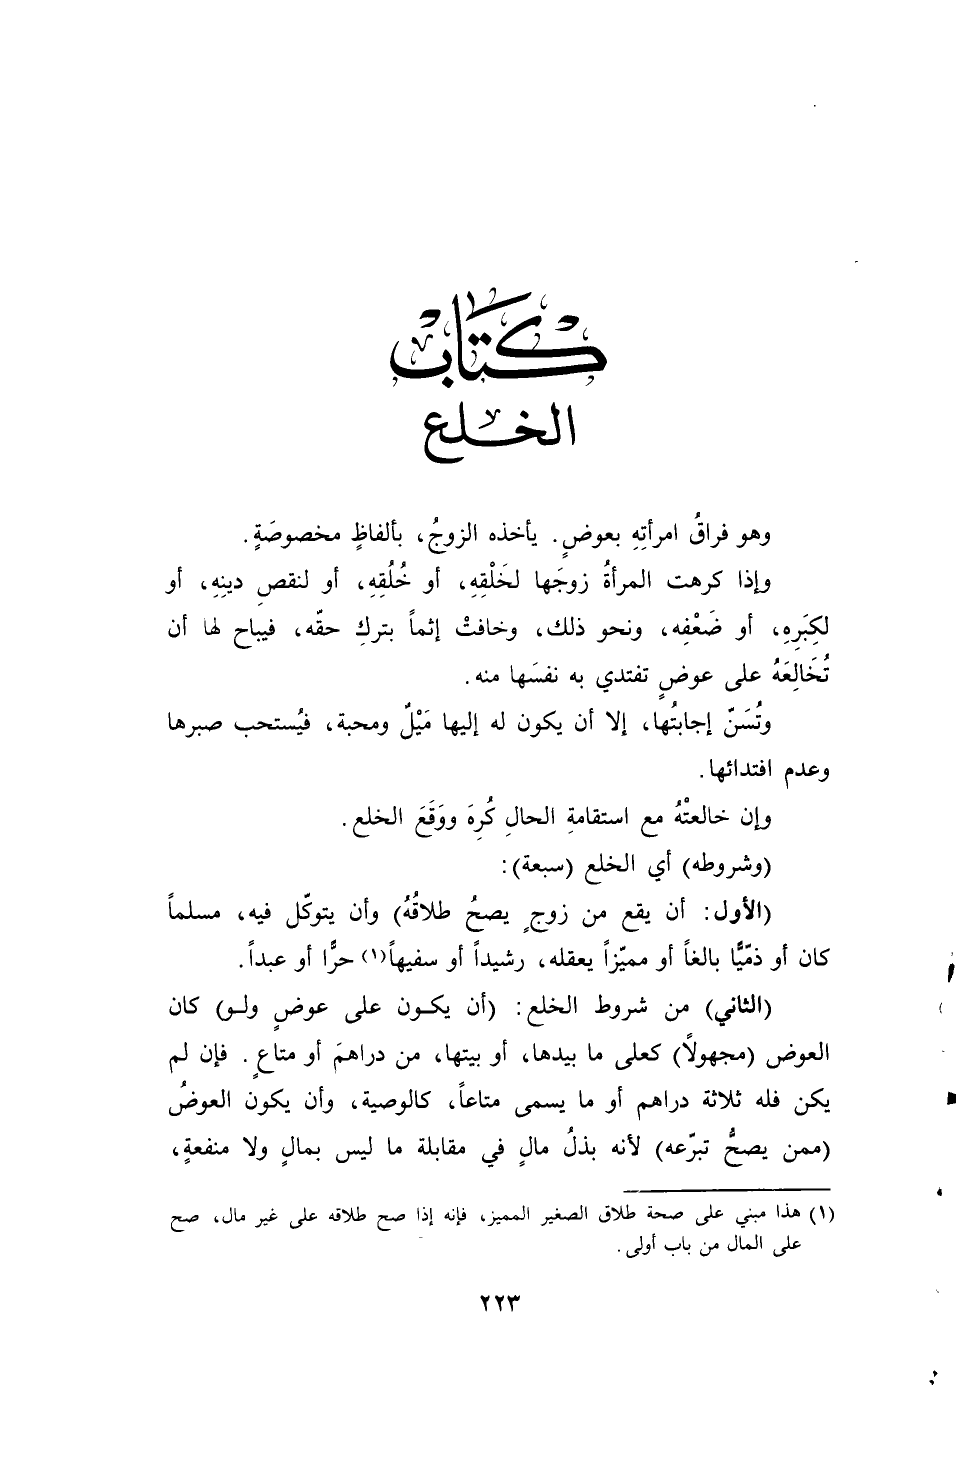 كتاب
الخلع
وهو فراقُ امرأتِهِ بعوضٍ. يأخذه الزوجُ، بألفاظٍ مخصوصَةٍ.
وإذا كرهت المرأةُ زوجَها لخَلْقِهِ، أو خُلُقِهِ، أو لنقصِ دينِهِ، أو
لكِبَرِهِ، أو ضَعْفِه، ونحو ذلك، وخافتْ إثماً بتركِ حقّه، فيباح لها أن
تُخَالِعَهُ على عوضٍ تفتدي به نفسَها منه.
وتُسَنّ إجابتُها، إلا أن يكون له إليها مَيْلٌ ومحبة، فيُستحب صبرها
وعدم افتدائها.
وإن خالعتْهُ مع استقامةِ الحالِ كُرِهَ ووَقَعَ الخلع.
(وشروطه) أي الخلع (سبعة):
(الأول: أن يقع من زوجٍ يصحُ طلاقُهُ) وأن يتوكّل فيه، مسلماً
كان أو ذمّيًّا بالغاً أو مميّزاً يعقله، رشيداً أو سفيهاً(١) حرًّا أو عبداً.
(الثاني) من شروط الخلع: (أن يكون على عوضٍ ولو) كان
العوض (مجهولًا) كعلى ما بيدها، أو بيتها، من دراهمَ أو متاعٍ. فإن لم
يكن فله ثلاثة دراهم أو ما يسمى متاعاً، كالوصية، وأن يكون العوضُ
(ممن يصحُّ تبرّعه) لأنه بذلُ مالٍ في مقابلة ما ليس بمالٍ ولا منفعةٍ،
(١) هذا مبني على صحة طلاق الصغير المميز، فإنه إذا صح طلاقه على غير مال، صح
على المال من باب أولى.
٢٢٣